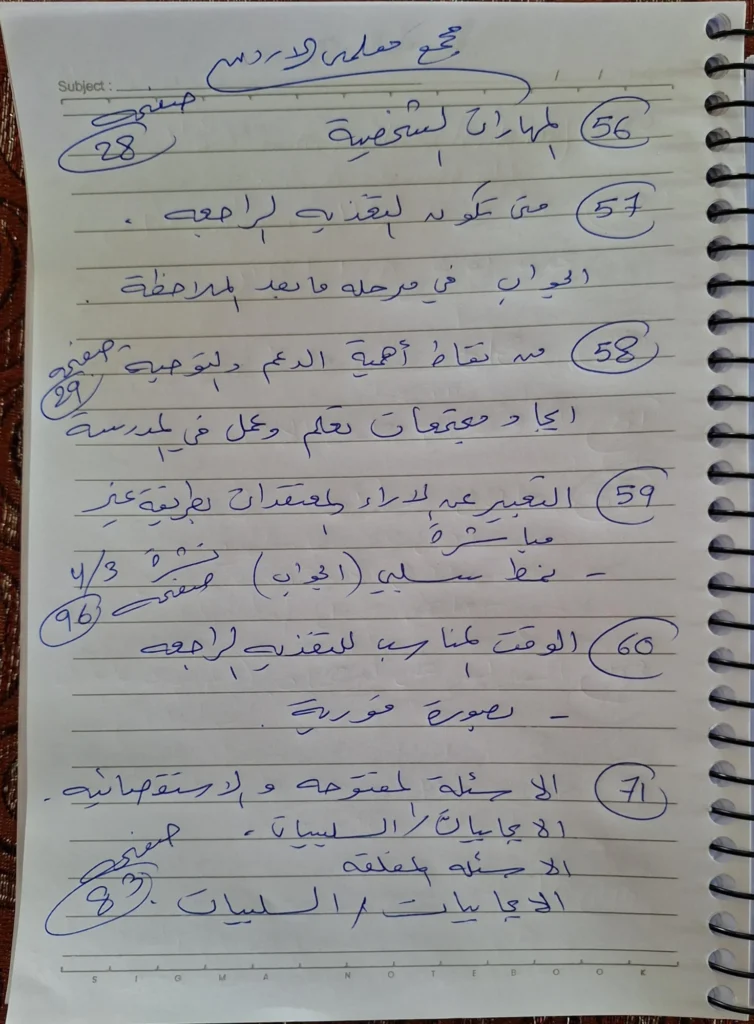 مجمع معلمي الاردن
Subject :
56 المهارات الشخصية صفحه 28
57 متى تكون التغذيه الراجعه .
الجواب في مرحله ما بعد الملاحظة .
58 من نقاط أهمية الدعم والتوجيه صفحه 29
ايجاد مجتمعات تعلم وعمل في المدرسة
59 التعبير عن الاراء والمعتقدات بطريقة غير
مباشرة
- نمط سلبي (الجواب) نشرة 4/3 صفحه 96
60 الوقت المناسب للتغذيه الراجعه
- بصورة فورية .
71 الاسئلة المفتوحه والاستقصائيه .
الايجابيات / السلبيات . صفحه 83
الاسئله المغلقه
الايجابيات / السلبيات .
SIGMA NOTEBOOK